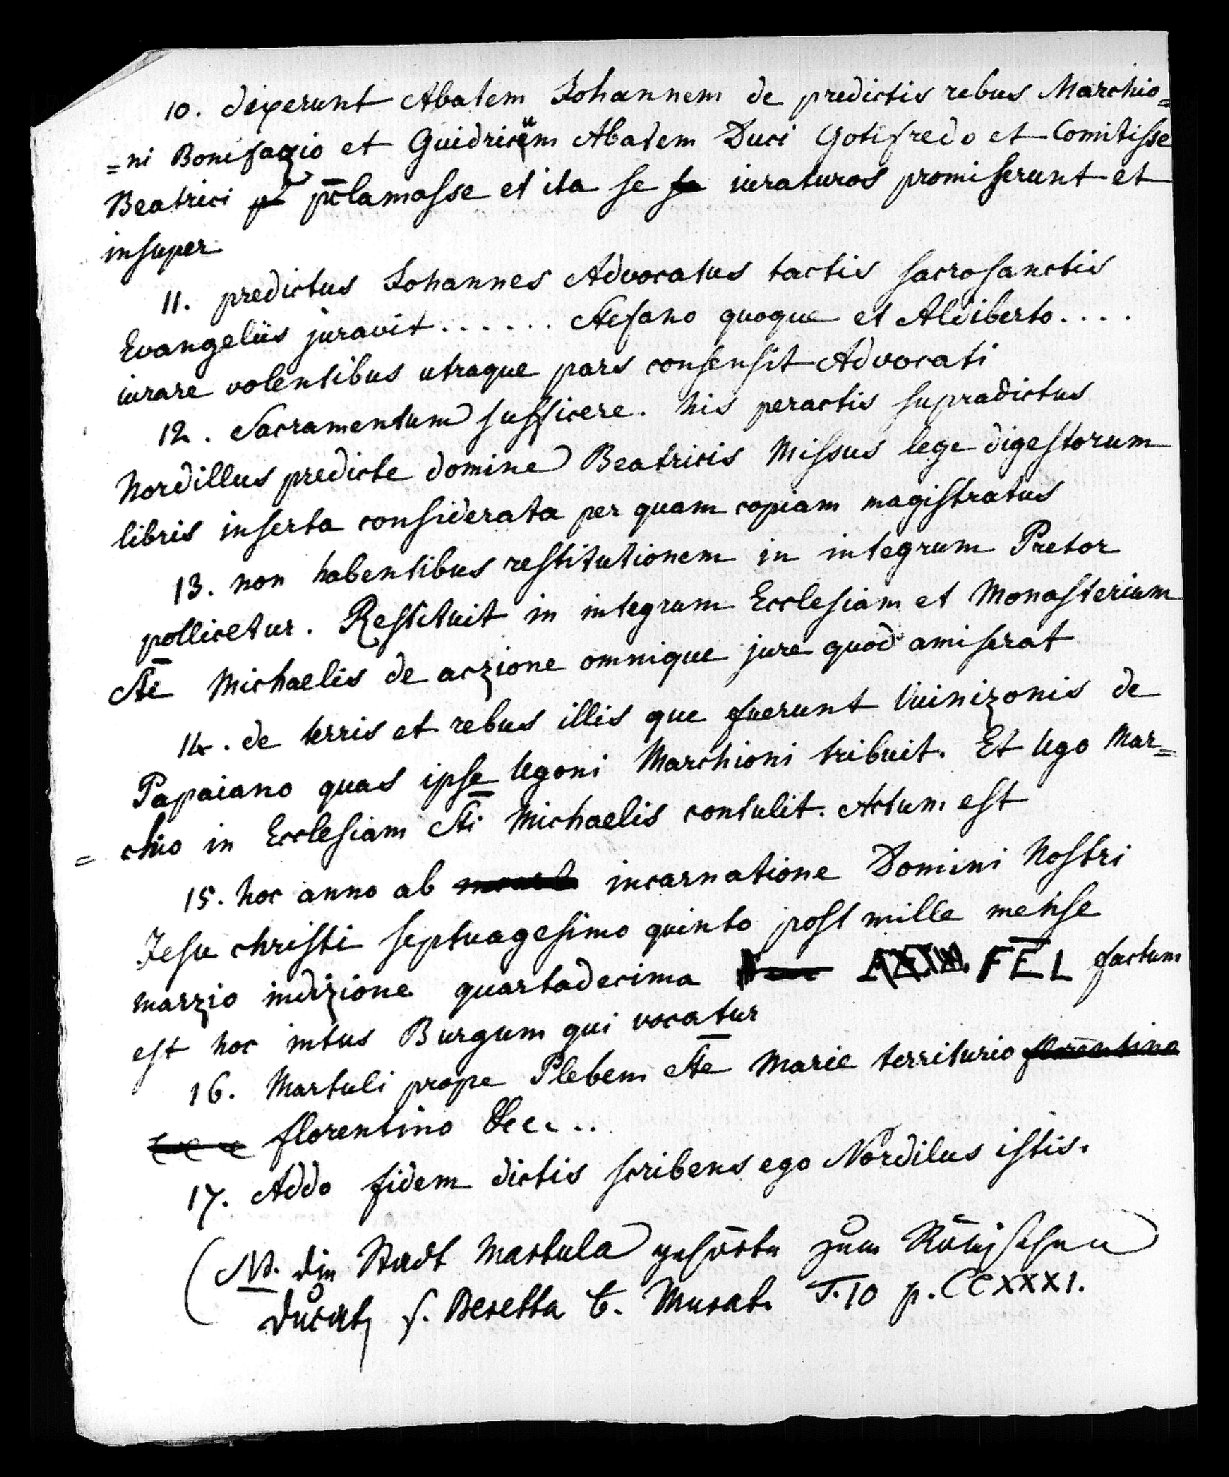 10. dixerunt Abatem Johannem de predictis rebus Marchio=
=ni Bonifazio et Guidricum Abatem Duci Gotifredo et Comitisse
Beatrici p̄clamasse et ita se iuraturos promiserunt et
insuper
11. predictus Johannes Advocatus tactis sacrosanctis
Evangeliis juravit ...... Stefano quoque et Aldiberto ....
iurare volentibus utraque pars consensit Advocati
12. Sacramentum sufficere. his peractis supradictus
Nordillus predicte domine Beatricis Missus lege digestorum
libris inserta considerata per quam copiam magistratus
13. non habentibus restitutionem in integrum Pretor
pollicetur. Restituit in integrum Ecclesiam et Monasterium
S̄te Michaelis de aczione omnique jure quod amiserat
14. de terris et rebus illis que fuerunt Vuinizonis de
Papaiano quas ipse Ugoni Marchioni tribuit. Et Ugo Mar=
=chio in Ecclesiam S̄ti Michaelis contulit. Actum est
15. hoc anno ab incarnatione Domini Nostri
Jesu christi septuagesimo quinto post mille mense
marzio indizione quartadecima FĒL factum
est hoc intus Burgum qui vocatur
16. Martuli prope Plebem S̄te Marie territurio
florentino &c...
17. Addo fidem dictis scribens ego Nordilus istis.
(NB. die Stadt Martula gehörte zum Römischen
Ducat, s. Beretta b. Murat. T. 10 p. CCXXXI.